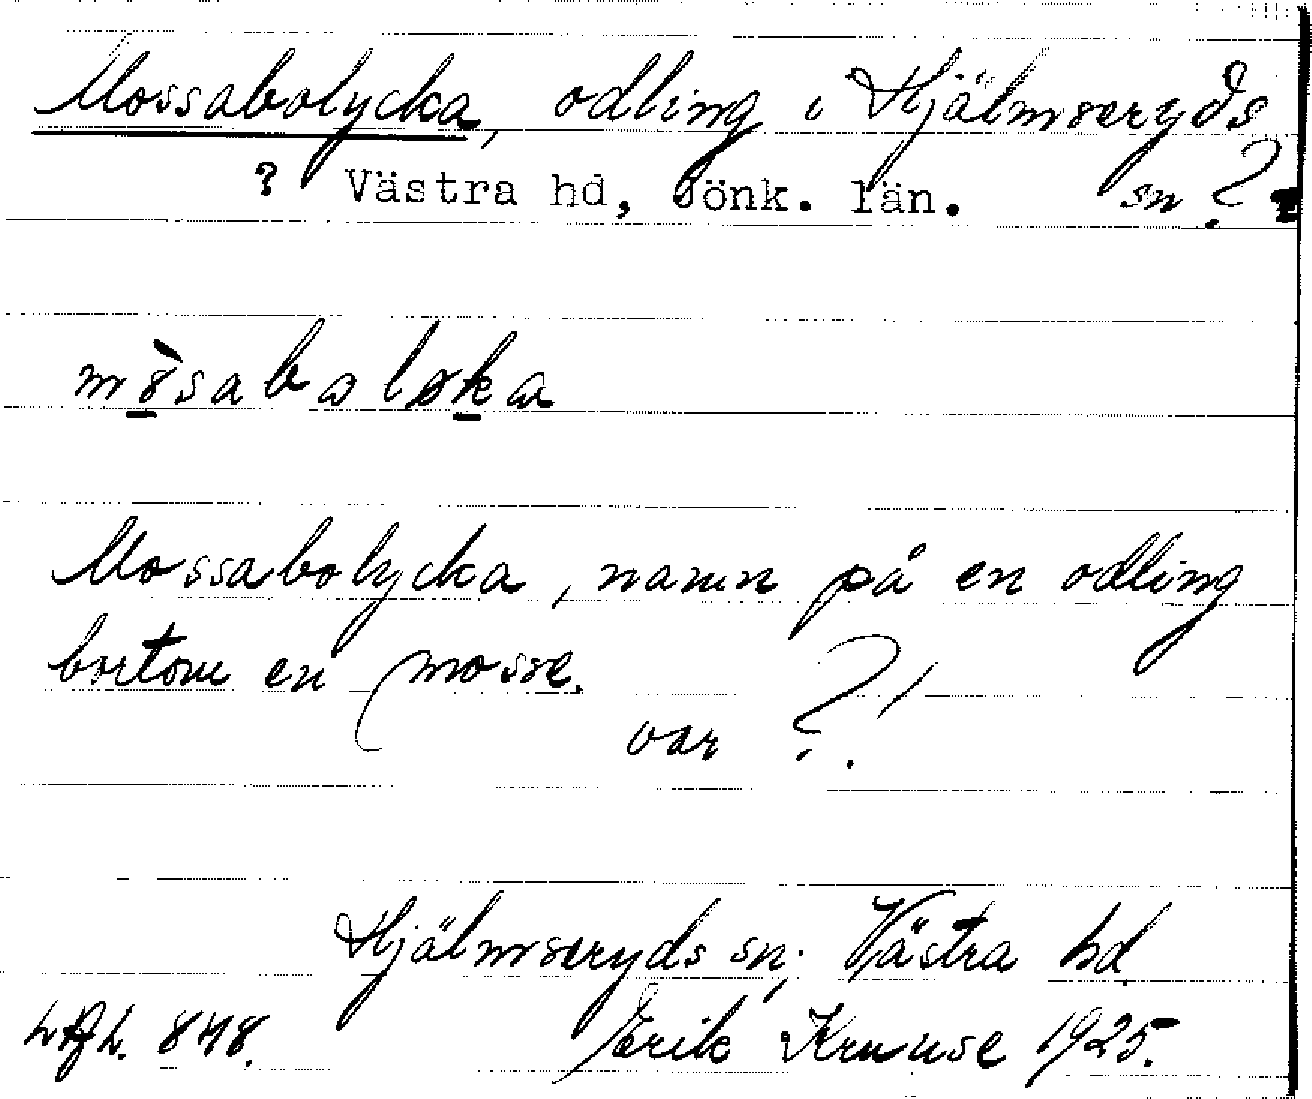 Mossabolycka, odling i Hjälmseryds
? Västra hd, Jönk. län. sn ?
Mossabolycka, namn på en odling
bortom en mosse.
var ?!
Hjälmseryds sn; Västra hd
848. Erik Kruuse 1925.